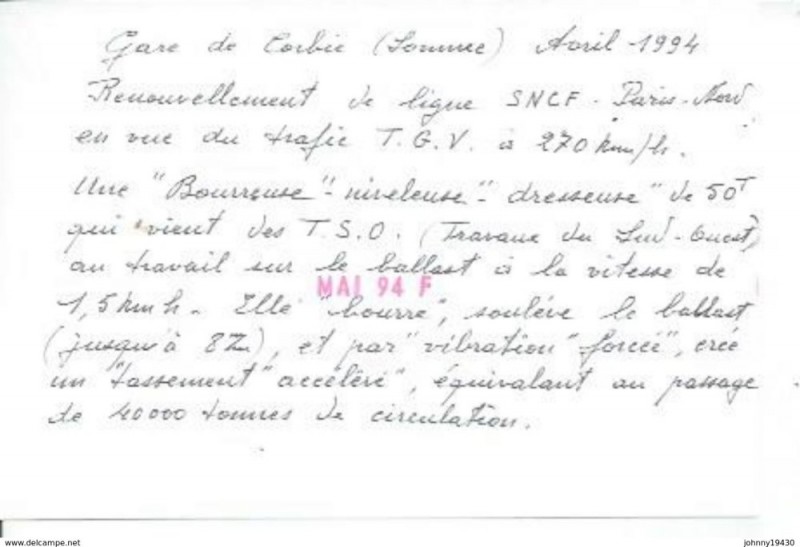 Gare de Corbie (Somme) Avril-1994
Renouvellement de ligne SNCF - Paris-Nord
en vue du trafic T.G.V. à 270 km/h.
Une "Bourreuse"-niveleuse"-dresseuse" de 50T
qui vient des T.S.O. (Travaux du Sud-Ouest)
au travail sur le ballast à la vitesse de
MAI 94 F
1,5 km h. Elle "bourre", soulève le ballast
(jusqu'à 8), et par "vibration" forcée", crée
un "tassement" accéléré", équivalant au passage
de 40000 tonnes de circulation.
www.delcampe.net
johnny19430